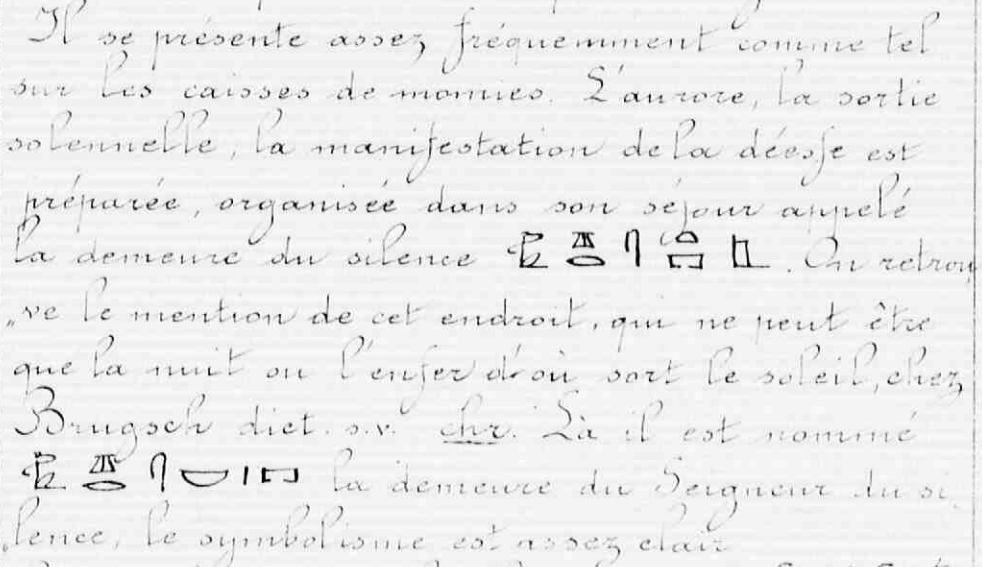 Il se présente assez fréquemment comme tel
sur les caisses de momies. L'aurore, la sortie
solennelle, la manifestation de la déesse est
préparée, organisée dans son séjour appelé
la demeure du silence . On retrou,
„ve le mention de cet endroit, qui ne peut être
que la nuit ou l'enfer d'où sort le soleil, chez
Brugsch dict. s.v. chr. Là il est nommé
la demeure du Seigneur du si,
„lence, le symbolisme est assez clair